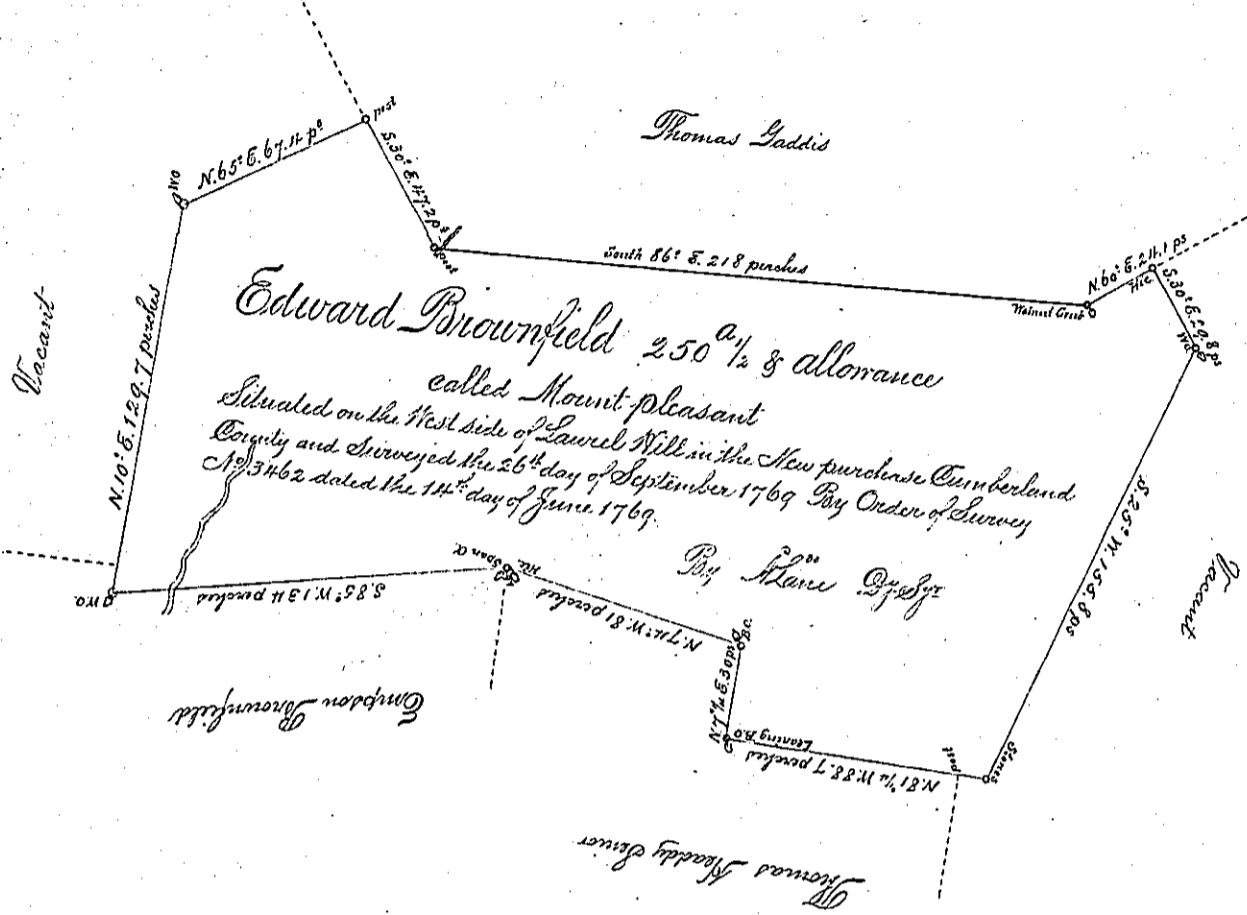 Thomas Gaddis
post
N. 65° E. 67.4 ps
W O
S. 30° E. 47.2 ps
post
South 86° E. 218 perches
N. 60° E. 24.1 ps
Hic
Walnut Grub
S. 30° E. 29.8 ps
W O
Vacant
N. 10° E. 129.7 perches
Edward Brownfield 250 a 1/2 & allowance
called Mount pleasant
Situated on the West side of Laurel Hill in the New purchase Cumberland
County and Surveyed the 26th day of September 1769 By Order of Survey
No 3462 dated the 14th day of June 1769.
By Dy. Syr.
S. 25° W. 155.8 ps
Vacant
W O.
S. 85° W. 134 perches
Span O.
Hic.
N. 74° W. 81 perches
B. O.
N. 7°1/4 E. 30 ps
Leaning B. O
N. 81°1/4 W. 88.7 perches
post
Stones
Empson Brownfield
Thomas Senior